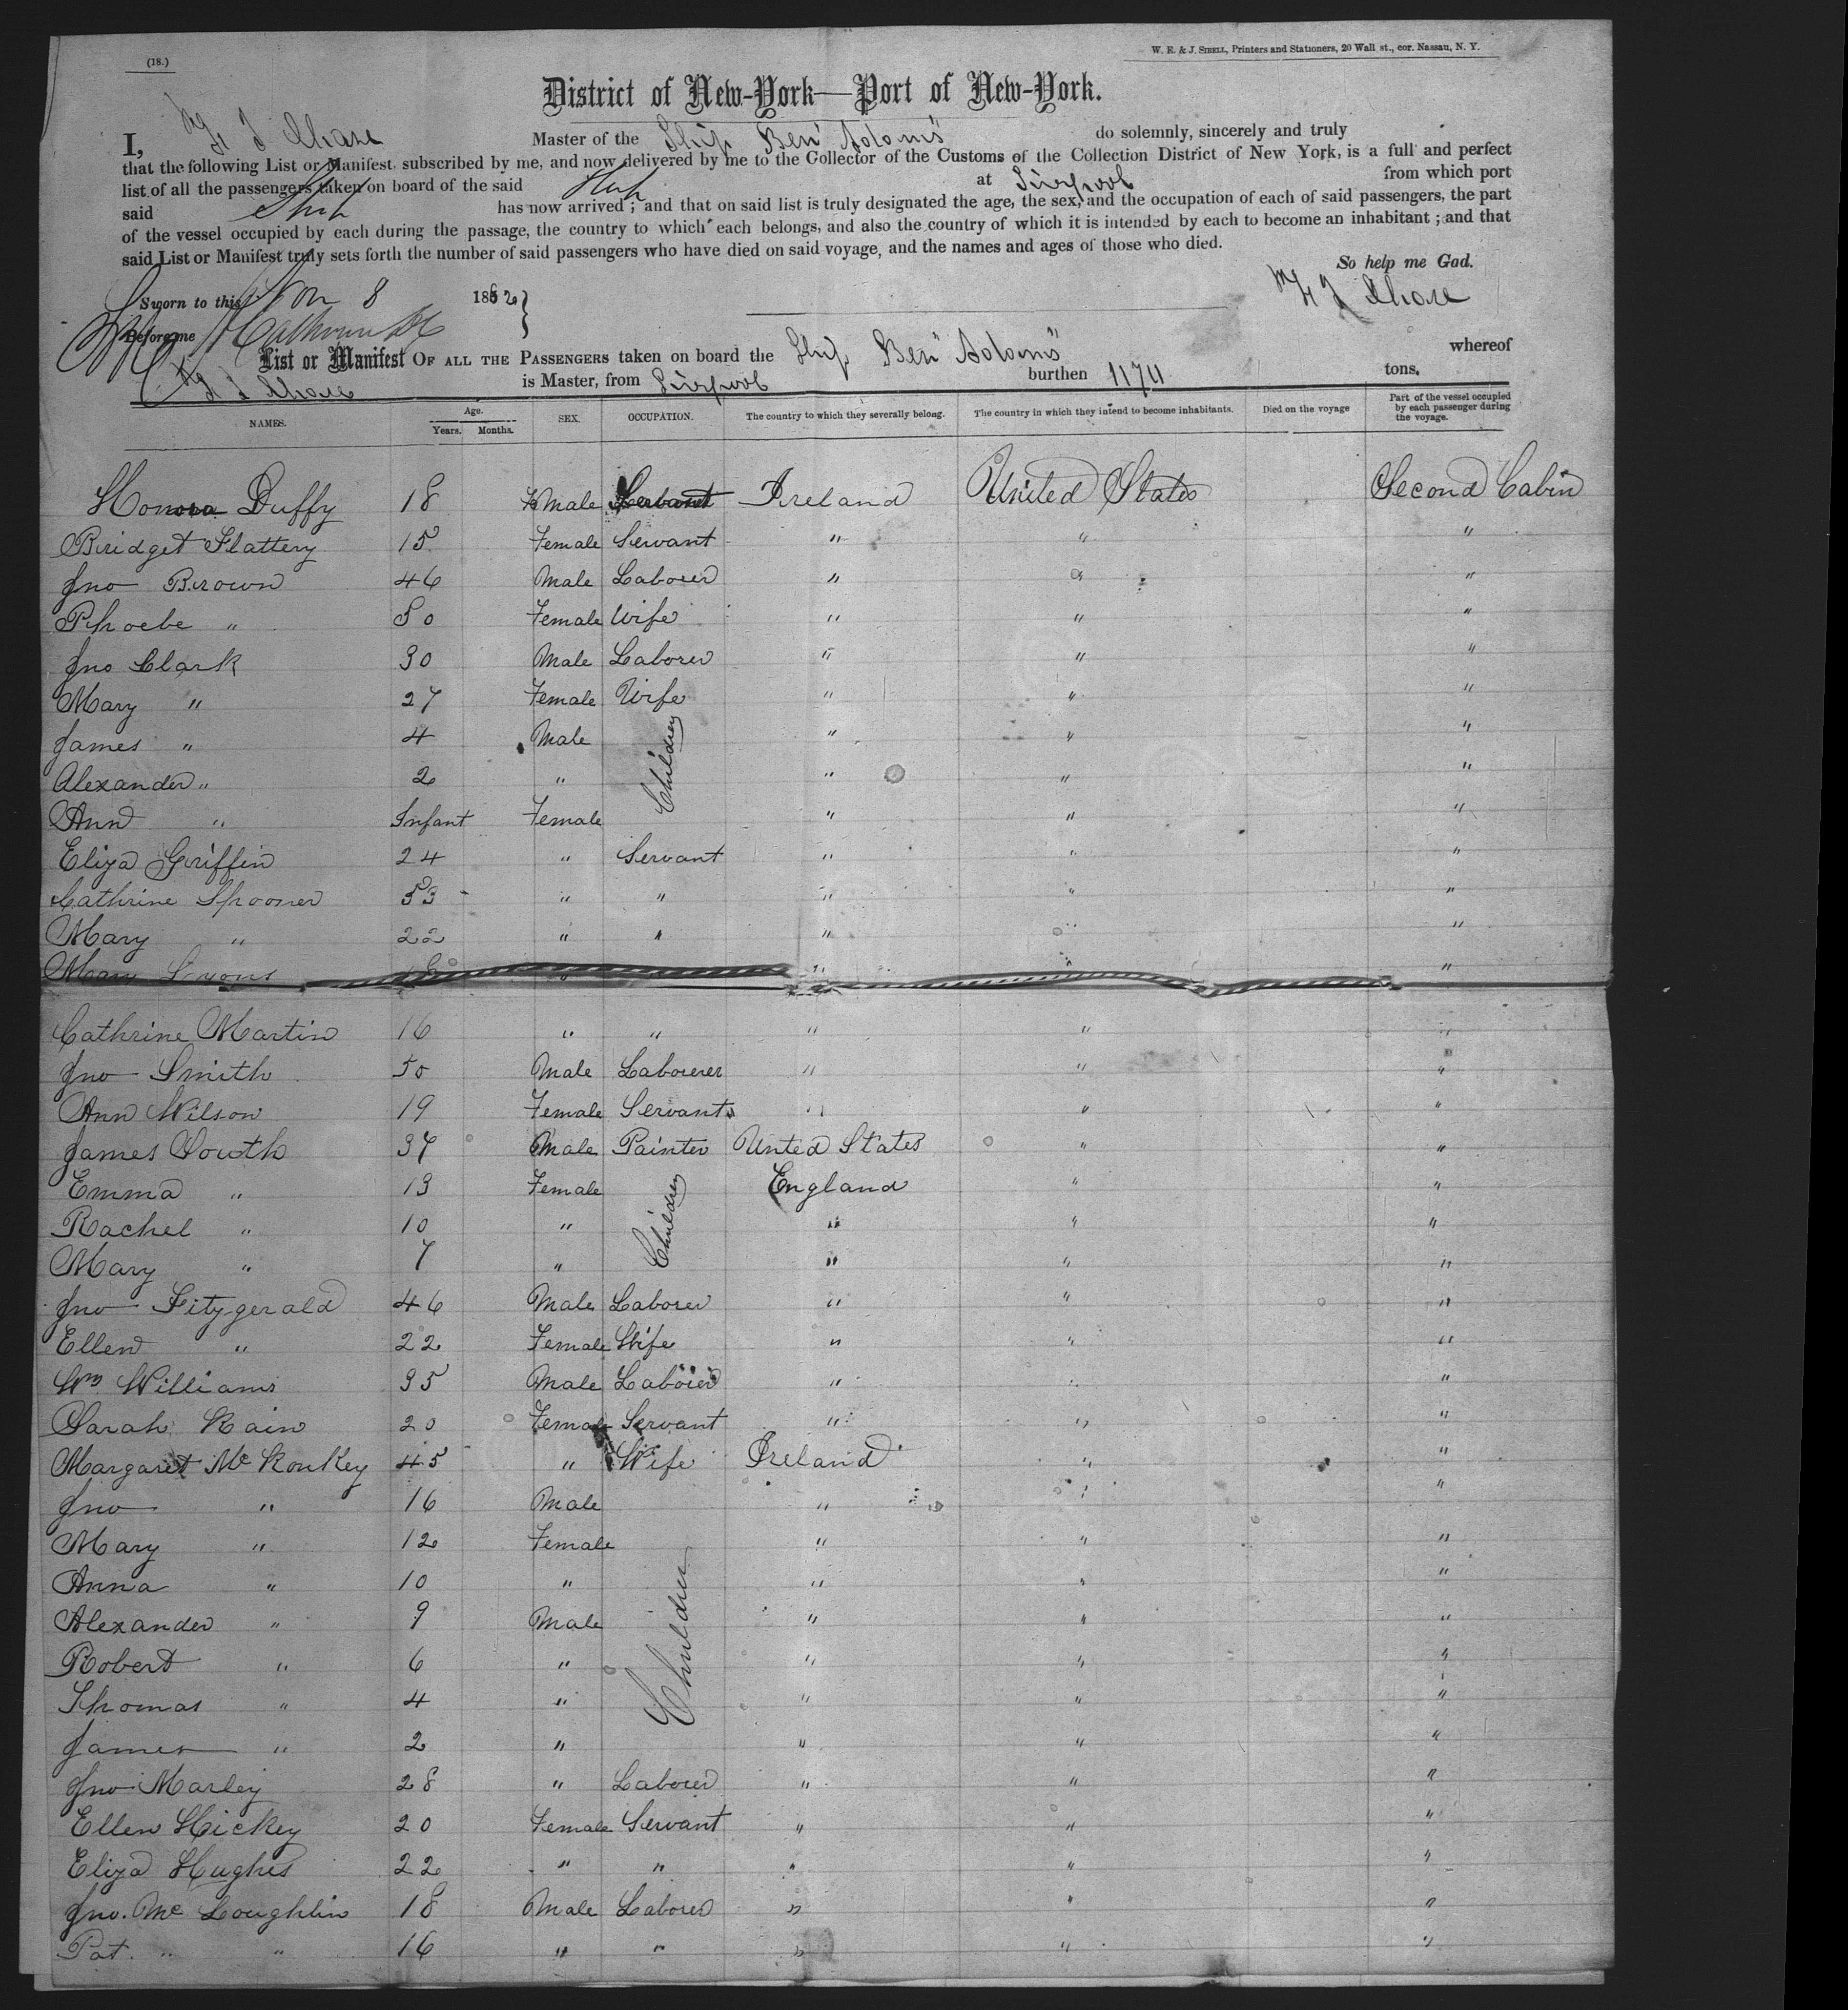 (18.)
W. E. & J. SIBELL, Printers and Stationers, 20 Wall st., cor. Nassau, N. Y.
District of New-York—Port of New-York.
I, Chase Master of the Ship Ben Adams do solemnly, sincerely and truly
that the following List or Manifest, subscribed by me, and now delivered by me to the Collector of the Customs of the Collection District of New York, is a full and perfect
list of all the passengers taken on board of the said Ship at Liverpool from which port
said Ship has now arrived; and that on said list is truly designated the age, the sex, and the occupation of each of said passengers, the part
of the vessel occupied by each during the passage, the country to which each belongs, and also the country of which it is intended by each to become an inhabitant; and that
said List or Manifest truly sets forth the number of said passengers who have died on said voyage, and the names and ages of those who died.
So help me God.
Sworn to this Nov 8 1862 } Chase
Before me
List or Manifest OF ALL THE PASSENGERS taken on board the Ship Ben Adams whereof
Chase is Master, from Liverpool burthen 1174 tons.
NAMES. Age. Years. Months. SEX. OCCUPATION. The country to which they severally belong. The country in which they intend to become inhabitants. Died on the voyage Part of the vessel occupied by each passenger during the voyage.
Honora Duffy 18 Servant Ireland United States Second Cabin
Bridget Flattery 15 Female Servant " " "
Jno Brown 46 Male Laborer " " "
Phoebe " 50 Female Wife " " "
Jno Clark 30 Male Laborer " " "
Mary " 27 Female Wife " " "
James " 4 Male Children " " "
Alexander " 2 " " " "
Ann " Infant Female " " "
Eliza Griffin 24 " Servant " " "
Cathrine Spooner 53 " " " " "
Mary " 22 " " " " "
Mary Lyons " " " "
Cathrine Martin 16 " " " " "
Jno Smith 50 Male Labourer " " "
Ann Wilson 19 Female Servant " " "
James South 37 Male Painter United States " "
Emma " 13 Female Children England " "
Rachel " 10 " " " "
Mary " 7 " " " "
Jno Fitzgerald 46 Male Laborer " " "
Ellen " 22 Female Wife " " "
Wm Williams 35 Male Laborer " " "
Sarah Kain 20 Female Servant " " "
Margaret McKonkey 45 " Wife Ireland " "
Jno " 16 Male " " "
Mary " 12 Female Children " " "
Anna " 10 " " " "
Alexander " 9 Male " " "
Robert " 6 " " " "
Thomas " 4 " " " "
James " 2 " " " "
Jno Marley 28 " Laborer " " "
Ellen Hickey 20 Female Servant " " "
Eliza Hughes 22 " " " " "
Jno. McLoughlin 18 Male Laborer " " "
Pat. " " 16 " " " " "